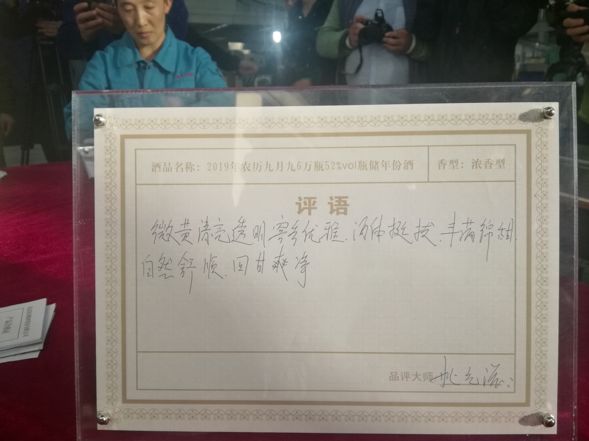 酒品名称：2019年农历九月九6万瓶52%vol瓶储年份酒
香型：浓香型
评语
微黄清亮透明.窖香优雅.酒体挺拔.丰满绵甜.
自然舒顺.回甘爽净
品评大师